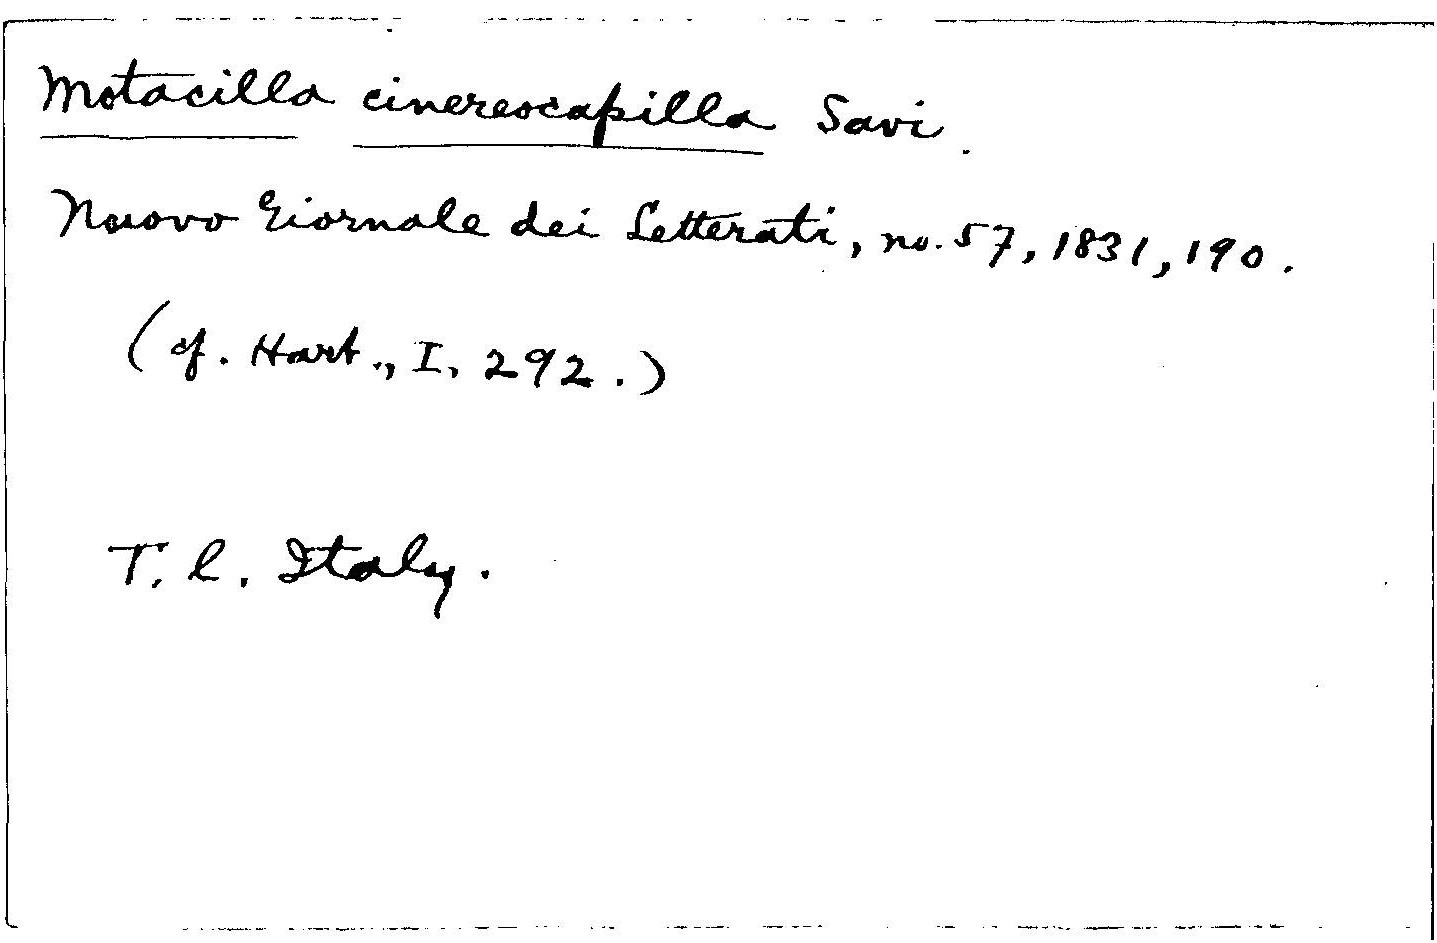 Motacilla cinereocapilla Savi.
Nuovo Giornale dei Letterati, no. 57, 1831, 190.
(cf. Hart., I, 292.)
T. l. Italy.